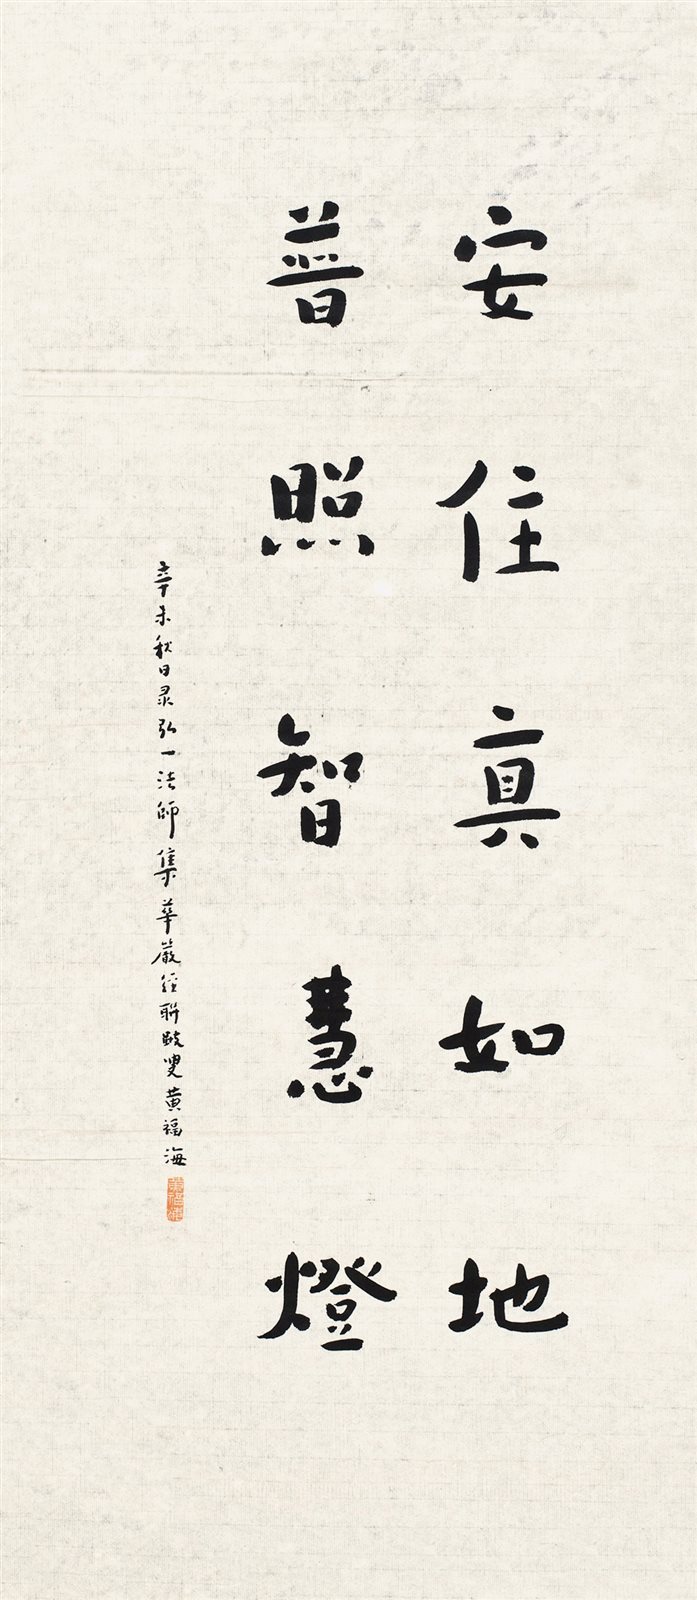 安住真如地
普照智慧燈
辛未秋日录弘一法師集華嚴經聯 叟黃福海
黃福海